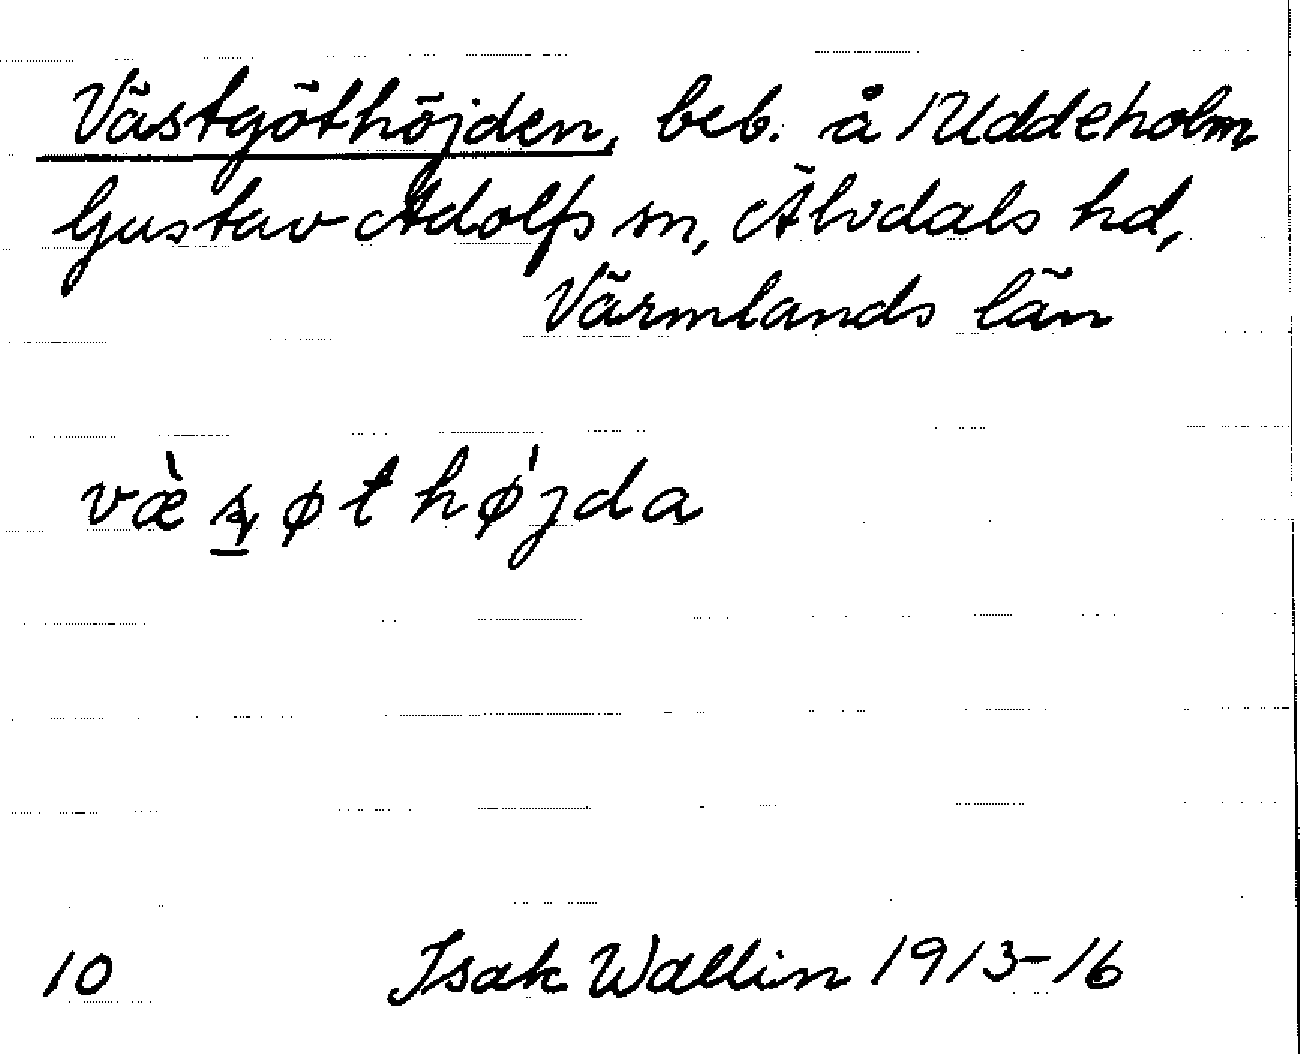 Västgöthöjden, beb. å 1 Uddeholm
Gustav Adolfs sn, Älvdals hd,
Värmlands län
væ̀ʂøthø̍jda
10 Isak Wallin 1913-16